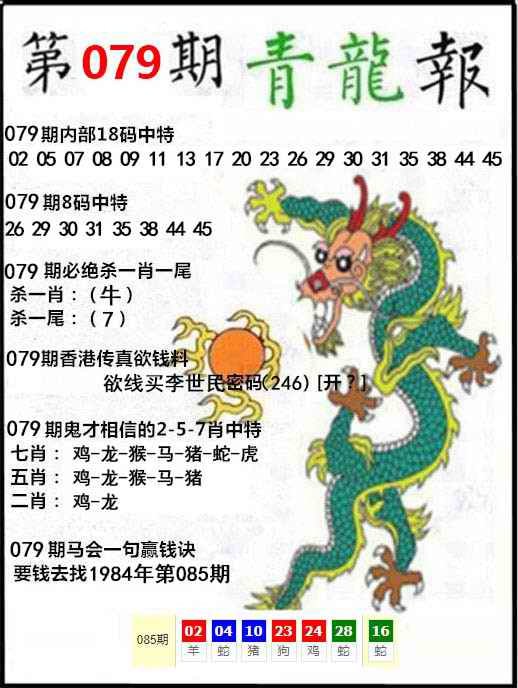 第079期 青龍報
079期内部18码中特
02 05 07 08 09 11 13 17 20 23 26 29 30 31 35 38 44 45
079期8码中特
26 29 30 31 35 38 44 45
079 期必绝杀一肖一尾
杀一肖：（牛）
杀一尾：（7）
079期香港传真欲钱料
欲线买李世民密码(246) [开？]
079期鬼才相信的2-5-7肖中特
七肖： 鸡-龙-猴-马-猪-蛇-虎
五肖： 鸡-龙-猴-马-猪
二肖： 鸡-龙
079期马会一句赢钱诀
要钱去找1984年第085期
085期 02 04 10 23 24 28 16
羊 蛇 猪 狗 鸡 蛇 蛇